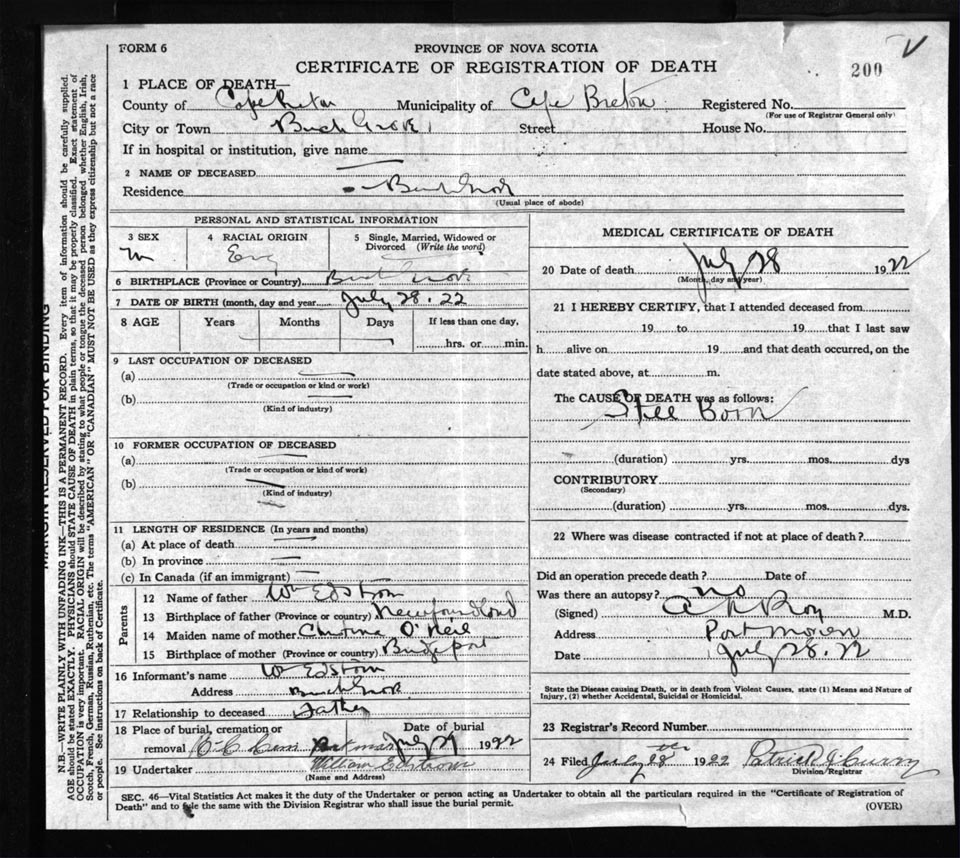 FORM 6
PROVINCE OF NOVA SCOTIA
CERTIFICATE OF REGISTRATION OF DEATH
200
1 PLACE OF DEATH—
County of Cape Breton Municipality of Cape Breton Registered No.
(For use of Registrar General only)
City or Town Birch Grove Street House No.
If in hospital or institution, give name
2 NAME OF DECEASED
Residence Birch Grove
(Usual place of abode)
PERSONAL AND STATISTICAL INFORMATION
3 SEX 4 RACIAL ORIGIN 5 Single, Married, Widowed or Divorced (Write the word)
m Eng
6 BIRTHPLACE (Province or Country) Birch Grove
7 DATE OF BIRTH (month, day and year) July 28. 22
8 AGE Years Months Days If less than one day,
hrs. or min.
9 LAST OCCUPATION OF DECEASED
(a)
(Trade or occupation or kind or work)
(b)
(Kind of industry)
10 FORMER OCCUPATION OF DECEASED
(a)
(Trade or occupation or kind of work)
(b)
(Kind of industry)
11 LENGTH OF RESIDENCE (In years and months)
(a) At place of death
(b) In province
(c) In Canada (if an immigrant)
Parents
12 Name of father Wm Edstrom
13 Birthplace of father (Province or country) Newfoundland
14 Maiden name of mother Christina O'Neil
15 Birthplace of mother (Province or country) Bridgeport
16 Informant's name Wm Edstrom
Address Birch Grove
17 Relationship to deceased Father
18 Place of burial, cremation or Date of burial
removal July 29 1922
19 Undertaker William Edstrom
(Name and Address)
MEDICAL CERTIFICATE OF DEATH
20 Date of death July 28 1922
(Month, day and year)
21 I HEREBY CERTIFY, that I attended deceased from
19 to 19 that I last saw
h alive on 19 and that death occurred, on the
date stated above, at m.
The CAUSE OF DEATH was as follows:
Still Born
(duration) yrs. mos. dys
CONTRIBUTORY
(Secondary)
(duration) yrs. mos. dys.
22 Where was disease contracted if not at place of death?
Did an operation precede death? Date of
Was there an autopsy? no
(Signed) M.D.
Address Port Morien
Date July 28. 22
State the Disease causing Death, or in death from Violent Causes, state (1) Means and Nature of
Injury, (2) whether Accidental, Suicidal or Homicidal.
23 Registrar's Record Number
24 Filed July 28 1922 Patrick
Division Registrar
SEC. 46—Vital Statistics Act makes it the duty of the Undertaker or person acting as Undertaker to obtain all the particulars required in the "Certificate of Registration of
Death" and to file the same with the Division Registrar who shall issue the burial permit.
(OVER)
MARGIN RESERVED FOR BINDING
N.B.—WRITE PLAINLY WITH UNFADING INK—THIS IS A PERMANENT RECORD. Every item of information should be carefully supplied.
AGE should be stated EXACTLY. PHYSICIANS should STATE CAUSE OF DEATH in plain terms, so that it may be properly classified. Exact statement of
OCCUPATION is very important. RACIAL ORIGIN will be described by stating to what people or tongue the deceased person belonged whether English, Irish,
Scotch, French, German, Russian, Ruthenian, etc. The terms "AMERICAN" OR "CANADIAN" MUST NOT BE USED as they express citizenship but not a race
or people. See instructions on back of Certificate.